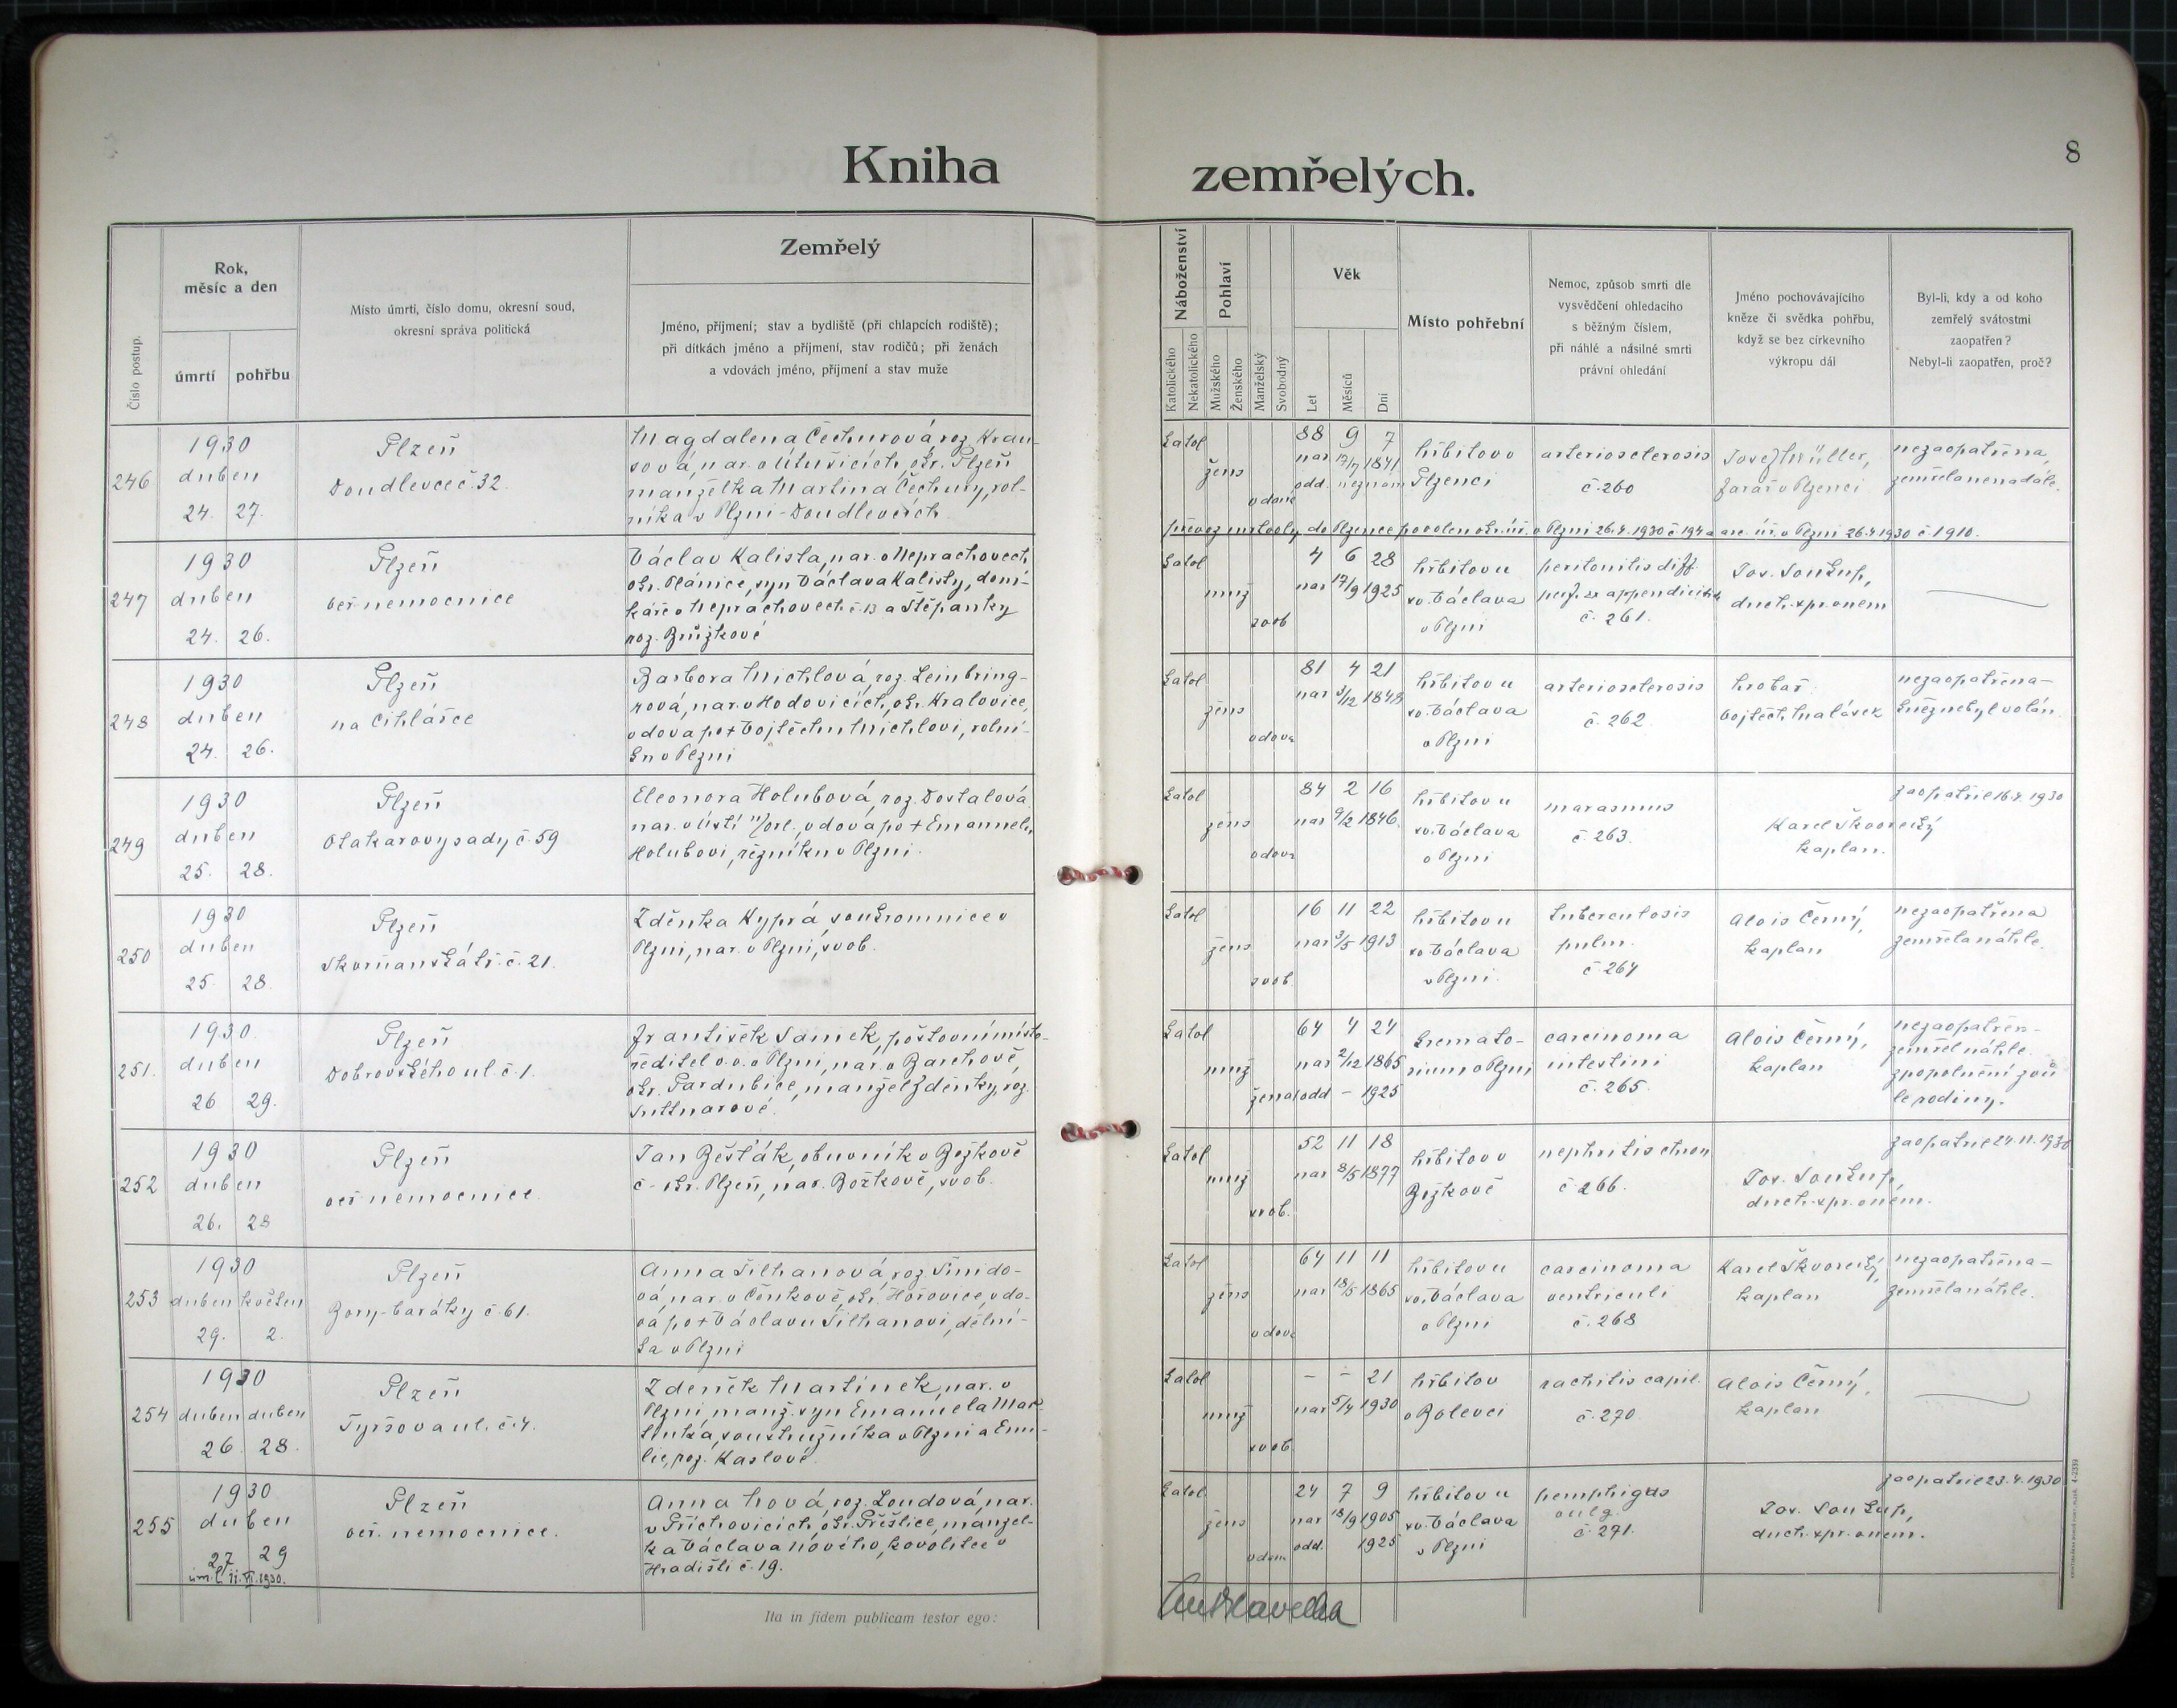 Kniha zemřelých.
8
Číslo postup.
Rok,
měsíc a den
úmrtí
pohřbu
Místo úmrtí, číslo domu, okresní soud,
okresní správa politická
Zemřelý
Jméno, příjmení; stav a bydliště (při chlapcích rodiště);
při dítkách jméno a příjmení, stav rodičů; při ženách
a vdovách jméno, příjmení a stav muže
Náboženství
Katolického
Nekatolického
Pohlaví
Mužského
Ženského
Manželský
Svobodný
Věk
Let
Měsíců
Dní
Místo pohřební
Nemoc, způsob smrti dle
vysvědčení ohledacího
s běžným číslem,
při náhlé a násilné smrti
právní ohledání
Jméno pochovávajícího
kněze či svědka pohřbu,
když se bez církevního
výkropu dál
Byl-li, kdy a od koho
zemřelý svátostmi
zaopatřen?
Nebyl-li zaopatřen, proč?
246
1930
duben
24. 27.
Plzeň
Doudlevce č. 32
Magdalena Čechurová roz. Krau-
sová, nar. v Útušicích, okr. Plzeň
manželka Martina Čechury, rol-
níka v Plzni-Doudlevcích
katol
žens
vdaná
88 9 7
nar 17/7 1841
odd. neznám
hřbitov v
Plzenci
arteriosclerosis
č. 260
Josef Müller,
farář v Plzenci
nezaopatřena,
zemřela nenadále.
převoz mrtvoly do Plzence povolen okr. úř. v Plzni 26.4.1930 č 194 a arc. úř. v Plzni 26.4.1930 č. 1910.
247
1930
duben
24. 26.
Plzeň
veř nemocnice
Václav Kalista, nar. v Neprachovech
okr. Plánice, syn Václava Kalisty, domi-
káře v Neprachovech č. 13 a Štěpánky
roz. Brůžkové
katol
muž
svob
4 6 28
nar 17/9 1925
hřbitov u
sv. Václava
v Plzni
peritonitis diff.
perf. ex appendicitide
č. 261.
Jos. Soukup,
duch. spr. v nem
248
1930
duben
24. 26.
Plzeň
na Cihlářce
Barbora Michlová roz. Leinbring-
rová, nar. v Hodovicích, okr. Kralovice,
vdova po + Vojtěchu Michlovi, rolní-
ku v Plzni
katol
žens
vdova
81 4 21
nar 3/12 1848
hřbitov u
sv. Václava
v Plzni
arteriosclerosis
č. 262.
hrobař
Vojtěch Malásek
nezaopatřena-
kněz nebyl volán.
249
1930
duben
25. 28.
Plzeň
Otakarovy sady č. 59
Eleonora Holubová, roz. Dostalová
nar. v Ústí n/orl., vdova po + Emanuelu
Holubovi, řezníku v Plzni.
katol
žens
vdova
84 2 16
nar 9/2 1846.
hřbitov u
sv. Václava
v Plzni
marasmus
č. 263.
Karel Škvorecký
kaplan.
zaopatřil 16.4. 1930
250
1930
duben
25. 28.
Plzeň
Skvrňanská tř. č. 21.
Zděnka Kyprá soukromnice v
Plzni, nar. v Plzni, svob.
katol
žens
svob.
16 11 22
nar 3/5 1913
hřbitov u
sv. Václava
v Plzni.
tuberculosis
pulm.
č. 264
Alois Černý,
kaplan
nezaopatřena
zemřela náhle.
251.
1930.
duben
26 29.
Plzeň
Dobrovského ul. č. 1.
František Samek, poštovní místo-
ředitel v.v. v Plzni, nar. v Barchově,
okr. Pardubice, manžel Zděnky, roz.
Suttnarové.
katol
muž
ženat
64 4 24
nar 2/12 1865
odd - 1925
kremato-
rium v Plzni
carcinoma
intestini
č. 265.
Alois Černý,
kaplan
nezaopatřen-
zemřel náhle.
zpopelnění z vů
le rodiny.
252
1930
duben
26. 28
Plzeň
veř nemocnice.
Jan Bešťák, obuvník v Božkově
č - okr. Plzeň, nar. Božkově, svob.
katol
muž
svob.
52 11 18
nar 8/5 1877
hřbitov v
Božkově
nephritis chron
č. 266.
Jos. Soukup,
duch. spr. v nem.
zaopatřil 24.11.1930
253
1930
duben květen
29. 2.
Plzeň
Bory-baráky č. 61.
Anna Šilhanová roz. Šmído-
vá, nar. v Čenkově, okr. Hořovice, vdo-
va po + Václavu Šilhanovi, dělní-
ka v Plzni
katol
žens
vdova
64 11 11
nar 18/5 1865
hřbitov u
sv. Václava
v Plzni
carcinoma
ventriculi
č. 268
Karel Škvorecký,
kaplan
nezaopatřena-
zemřela náhle.
254
1930
duben duben
26. 28.
Plzeň
Tyršova ul. č. 4.
Zdeněk Martínek, nar. v
Plzni, manž. syn Emanuela Mar-
tínka, soustružníka v Plzni a Emi-
lie, roz. Kaslové.
katol
muž
svob.
- - 21
nar 5/4 1930
hřbitov
v Bolevci
rachitis capil.
č. 270
Alois Černý,
kaplan
255
1930
duben
27 29
úm. l. 11. VI. 1930.
Plzeň
veř. nemocnice.
Anna Nová, roz. Loudová, nar.
v Příchovicích, okr. Přeštice, manžel-
ka Václava Nového, kovolitce v
Hradišti č. 19.
katol.
žens
vdan.
24 7 9
nar 18/9 1905
odd. 1925
hřbitov u
sv. Václava
v Plzni
pemphigus
vulg.
č. 271.
Jos. Soukup,
duch. spr. v nem.
zaopatřil 23.4.1930
Ita in fidem publicam testor ego: